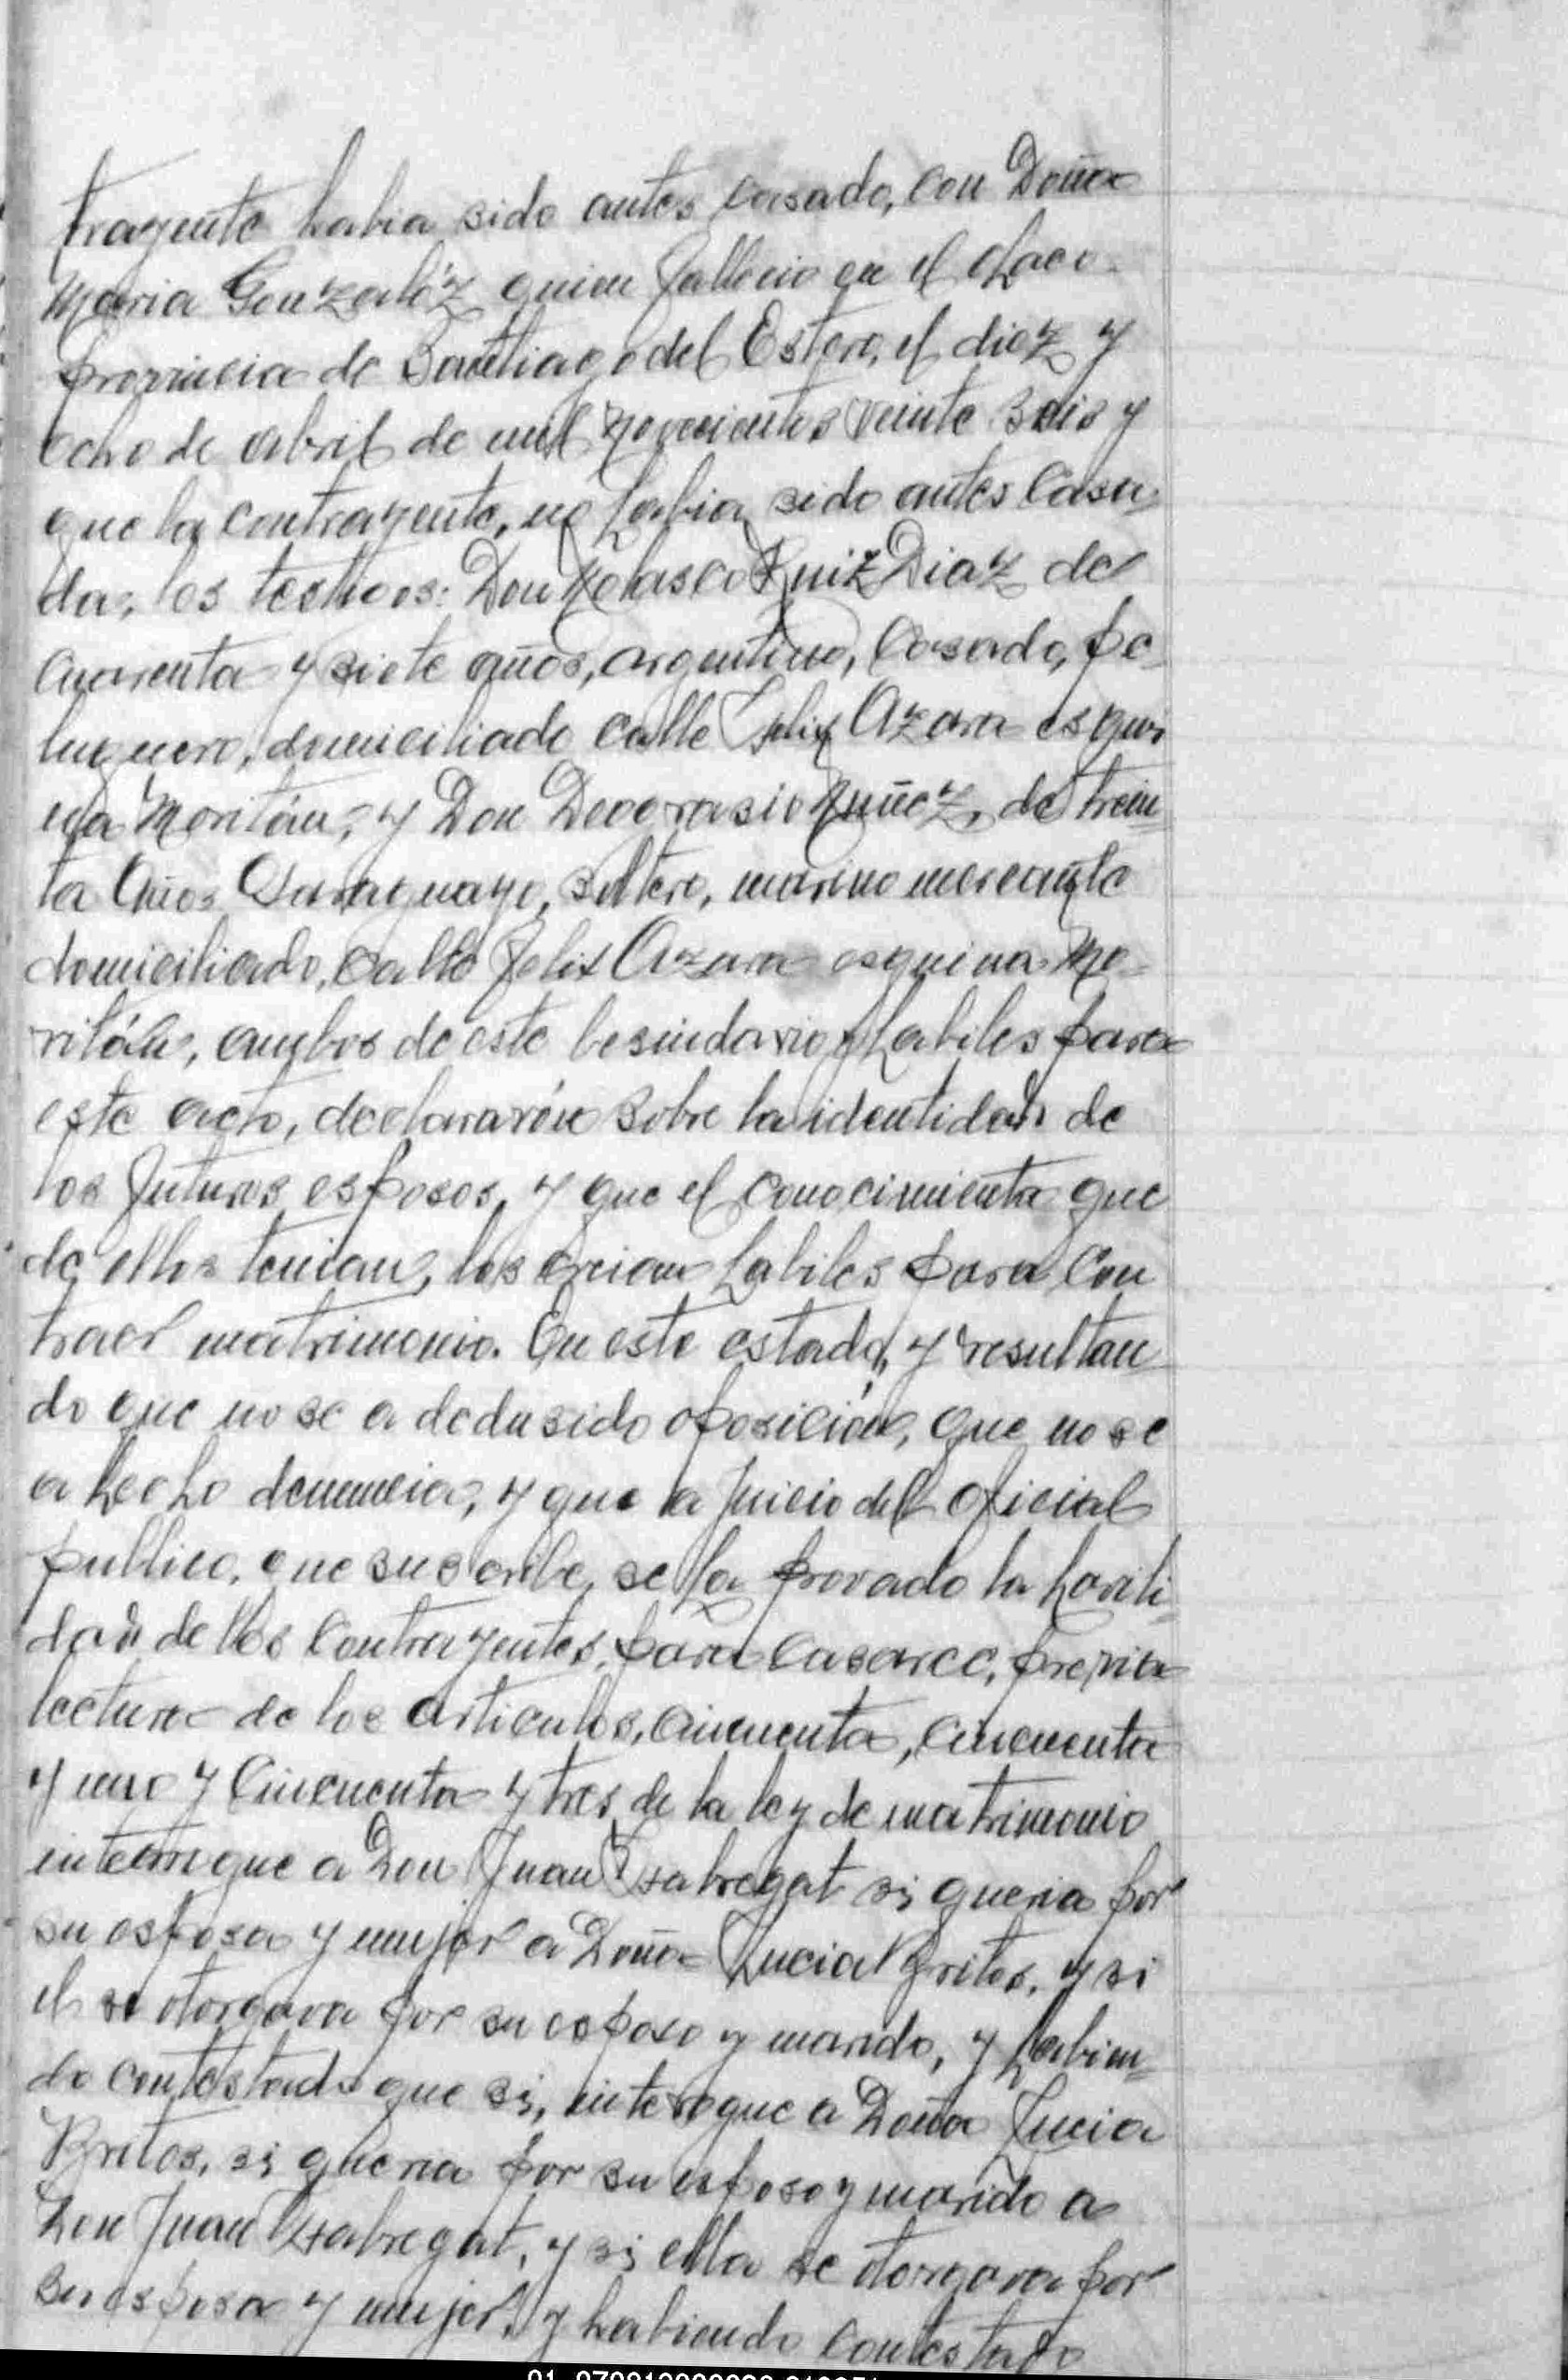 trayente habia sido antes casado, con Doña
Maria Gonzaléz quien fallecio en el chaco
provincia de Santiago del Estero, el diez y
ocho de abril de mil novecientos veinte seis y
que la contrayente, no habia sido antes casa-
da, los testigos: Don Nolasco Ruiz Diaz de
cuarenta y siete años, argentino, casado, pe-
luquero, domiciliado calle Felix Azara esqui
na Moritán, y Don Deograsio Nuñez, de trein-
ta años Paraguayo, soltero, marino mercante
domiciliado, calle Felix Azara esquina Mo-
ritán, ambos de este besindario y habiles para
este acto, declararón sobre la identidad de
los futuros esposos, y que el conocimiento que
de ellos tenian, los creian habiles para con
traer matrimonio. En este estado, y resultan-
do que no se a dedusido oposición, que no se
a hecho denuncia, y que a juicio del oficial
publico, que suscribe, se ha provado la havili-
dad de los contrayentes, para casarce, previa
lectura de los articulos, cincuenta, cincuenta
y uno y cincuenta y tres de la ley de matrimonio
interrogue a Don Juan si queria por
su esposa y mujer a Doña Lucia Britos, y si
el se otorgava por su esposo y marido, y habien-
do contestado que si, interogue a Doña Lucia
Britos, si queria por su esposo y marido a
Don Juan y si ella se otorgava por
su esposa y mujer, y habiendo contestado